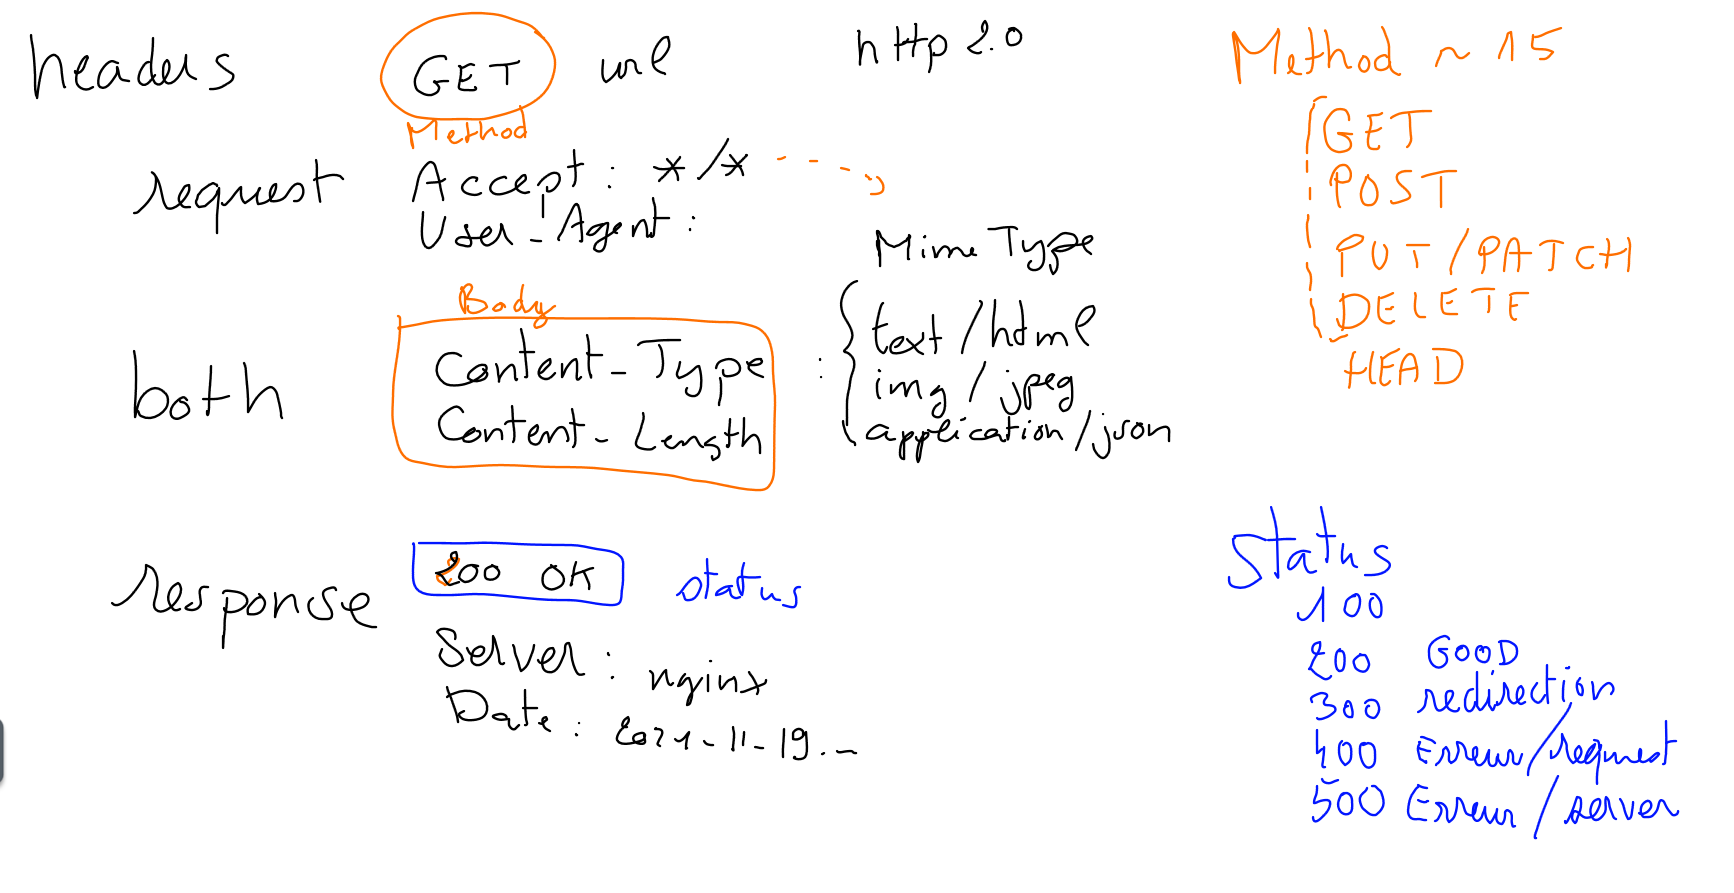 headers GET url http 2.0
Method
request Accept : */*
User-Agent :
Mime Type
Body
both Content-Type : text/html
img/jpeg
Content-Length application/json
response 200 OK status
Server : nginx
Date : 2021-11-19.-
Method ~ 15
GET
POST
PUT/PATCH
DELETE
HEAD
Status
100
200 GOOD
300 redirection
400 Erreur/request
500 Erreur/server